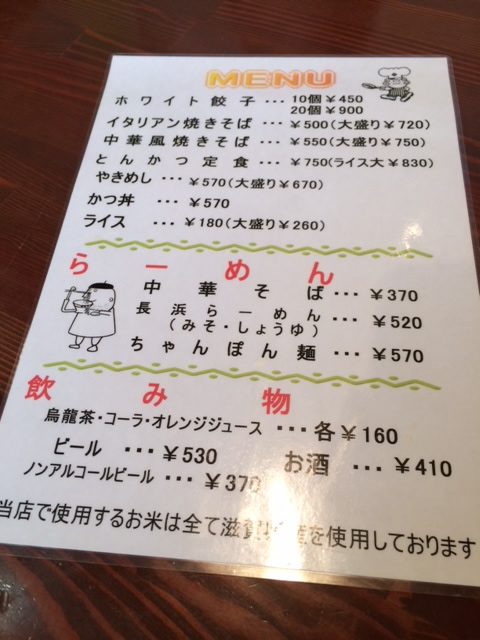 MENU
ホワイト餃子 ・・・ 10個￥450
20個￥900
イタリアン焼きそば ・・・ ￥500(大盛り￥720)
中華風焼きそば ・・・ ￥550(大盛り￥750)
とんかつ定食 ・・・ ￥750(ライス大￥830)
やきめし ・・・ ￥570(大盛り￥670)
かつ丼 ・・・ ￥570
ライス ・・・ ￥180(大盛り￥260)
らーめん
中華そば ・・・ ￥370
長浜らーめん ・・・ ￥520
(みそ・しょうゆ)
ちゃんぽん麺 ・・・ ￥570
飲み物
烏龍茶・コーラ・オレンジジュース ・・・ 各￥160
ビール ・・・ ￥530 お酒 ・・・ ￥410
ノンアルコールビール ・・・ ￥370
当店で使用するお米は全て滋賀を使用しております